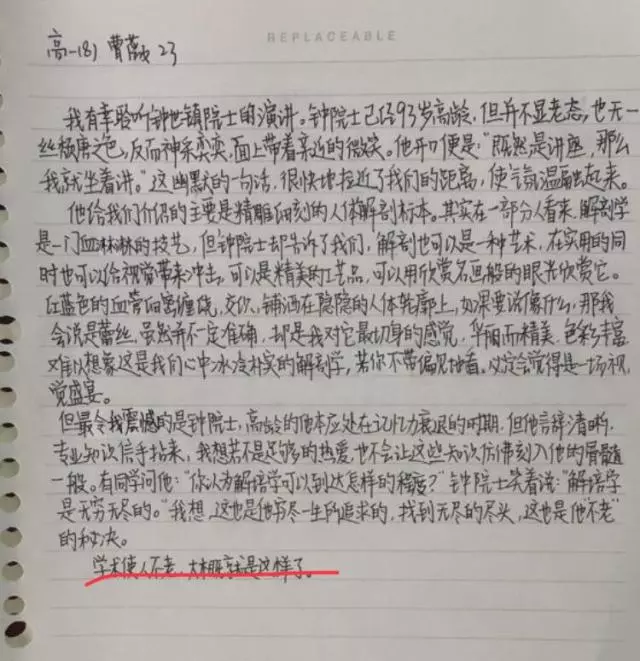 REPLACEABLE
高一(8) 曹薇 23
我有幸聆听钟世镇院士的演讲。钟院士已经93岁高龄,但并不显老态,也无一
丝颓唐之色,反而神采奕奕,面上带着亲近的微笑。他开口便是:“既然是讲座,那么
我就坐着讲。”这幽默的一句话,很快地拉近了我们的距离,使气氛温融起来。
他给我们介绍的主要是精雕细刻的人体解剖标本。其实在一部分人看来,解剖学
是一门血淋淋的技艺,但钟院士却告诉了我们,解剖也可以是一种艺术,在实用的同
时也可以给视觉带来冲击,可以是精美的工艺品,可以用欣赏名画般的眼光欣赏它。
红蓝色的血管向里缠绕,交织,铺洒在隐隐的人体轮廓上,如果要说像什么,那我
会说是蕾丝,虽然并不一定准确,却是我对它最切身的感觉,华丽而精美,色彩丰富
难以想象这是我们心中冰冷朴实的解剖学,若你不带偏见地看,必定会觉得是一场视
觉盛宴。
但最令我震憾的是钟院士,高龄的他本应处在记忆力衰退的时期,但他言辞清晰,
专业知识信手拈来,我想若不是足够的热爱,也不会让这些知识仿佛刻入他的骨髓
一般。有同学问他:“你认为解剖学可以到达怎样的程度?”钟院士笑着说:“解剖学
是无穷无尽的。”我想,这也是他穷尽一生所追求的,找到无尽的尽头,这也是他不老”
的秘决。
学术使人不老,大概就是这样了。